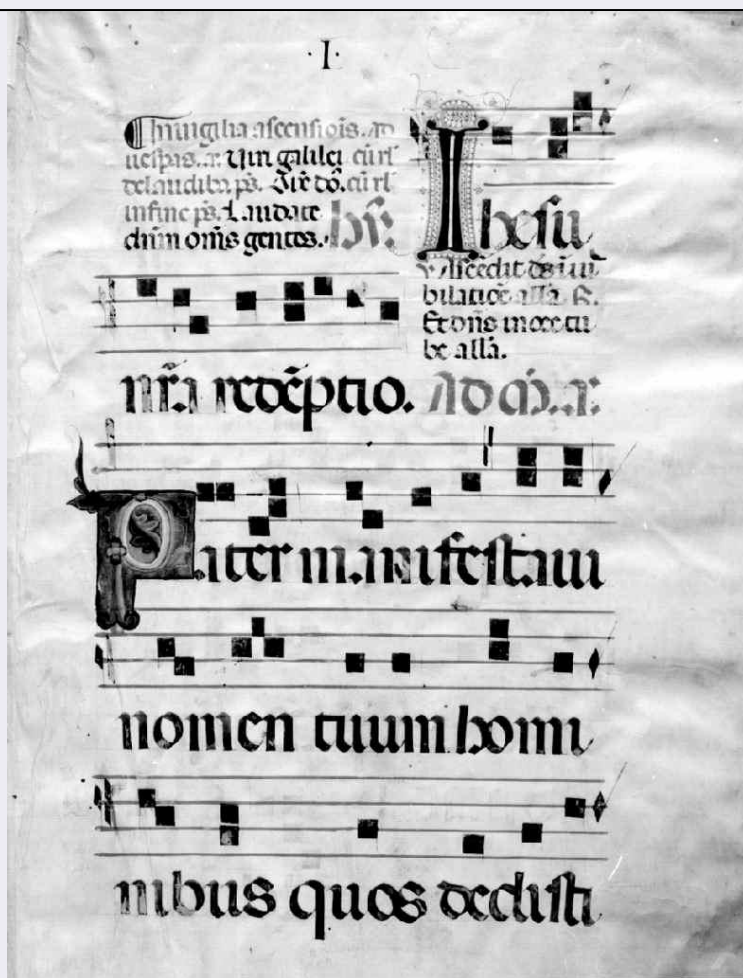 ·I·
In uigilia ascensiois. ad
uespas. a. Uiri galilei cū rl'
de laudib̄ ps. cū rl'
in fine ps. Laudate
dnm oms gentes. hy.
Ihesu
v. Ascēdit ds ī iu
bilatiōe alla. R.
Et dns in uoce tu
be alla.
nr̄a redēptio. Ad m̄. a.
Pater manifestaui
nomen tuum homi
nibus quos dedisti